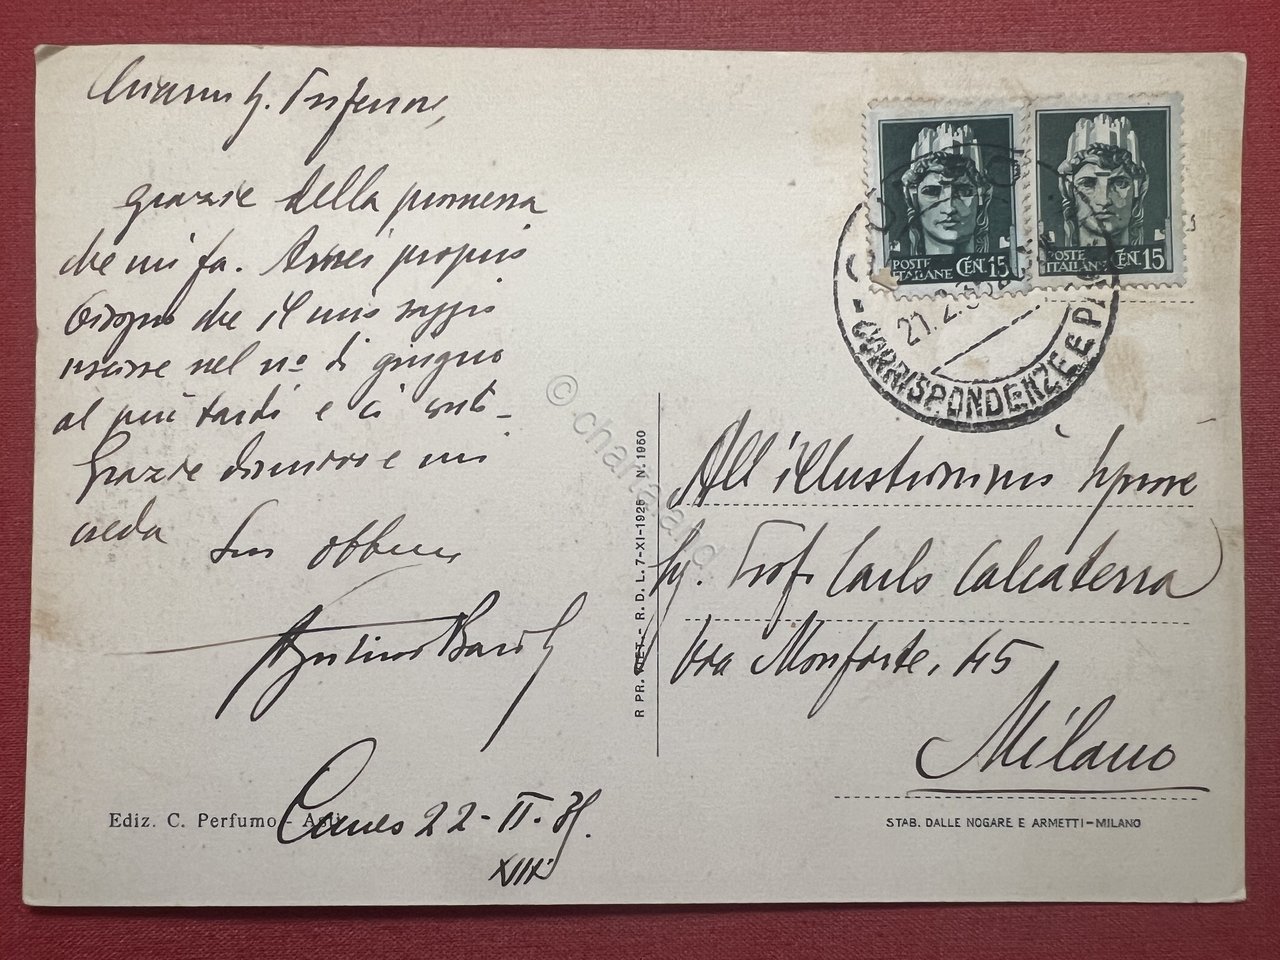 Chiarmo Sg. Professore,
grazie della promessa
che mi fa. Avrei proprio
bisogno che il mio saggio
uscisse nel nº di giugno
al più tardi e ci conto.
Grazie di nuovo e mi
creda
Suo obb
Cuneo 22-II-35.
XIII
Ediz. C. Perfumo - Asti
R PR. VIET. - R. D. L. 7-XI-1925 N. 1950
© chartaland
POSTE ITALIANE CENT. 15
POSTE ITALIANE CENT. 15
CORRISPONDENZE E P
21.2.3
All'illustrissimo Signore
Sg. Prof. Carlo Calcaterra
Via Monforte, 45
Milano
STAB. DALLE NOGARE E ARMETTI-MILANO